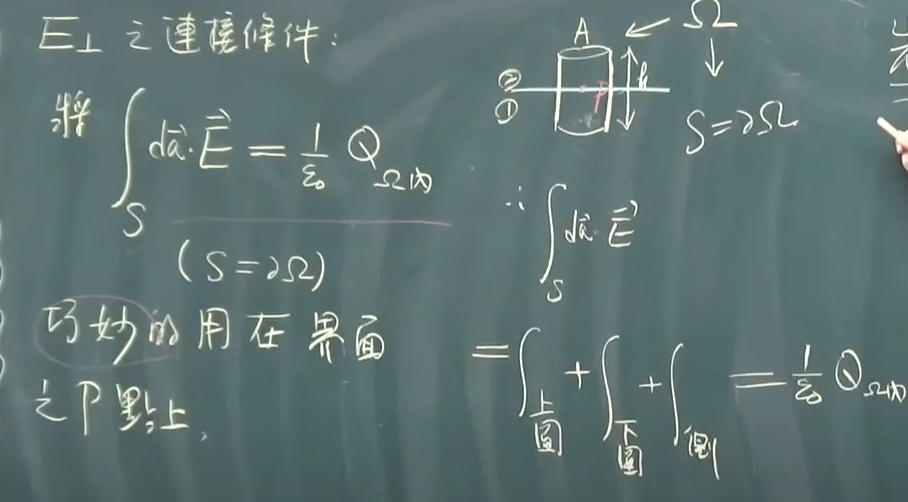 E⊥ 之連接條件:
將 ∫_S da⃗·E⃗ = 1/ε₀ Q_Ω內
(S=∂Ω)
巧妙的用在界面
之P點上,
A Ω
② ① P h
S=∂Ω
∴ ∫_S da⃗·E⃗
= ∫_上圓 + ∫_下圓 + ∫_側 = 1/ε₀ Q_Ω內